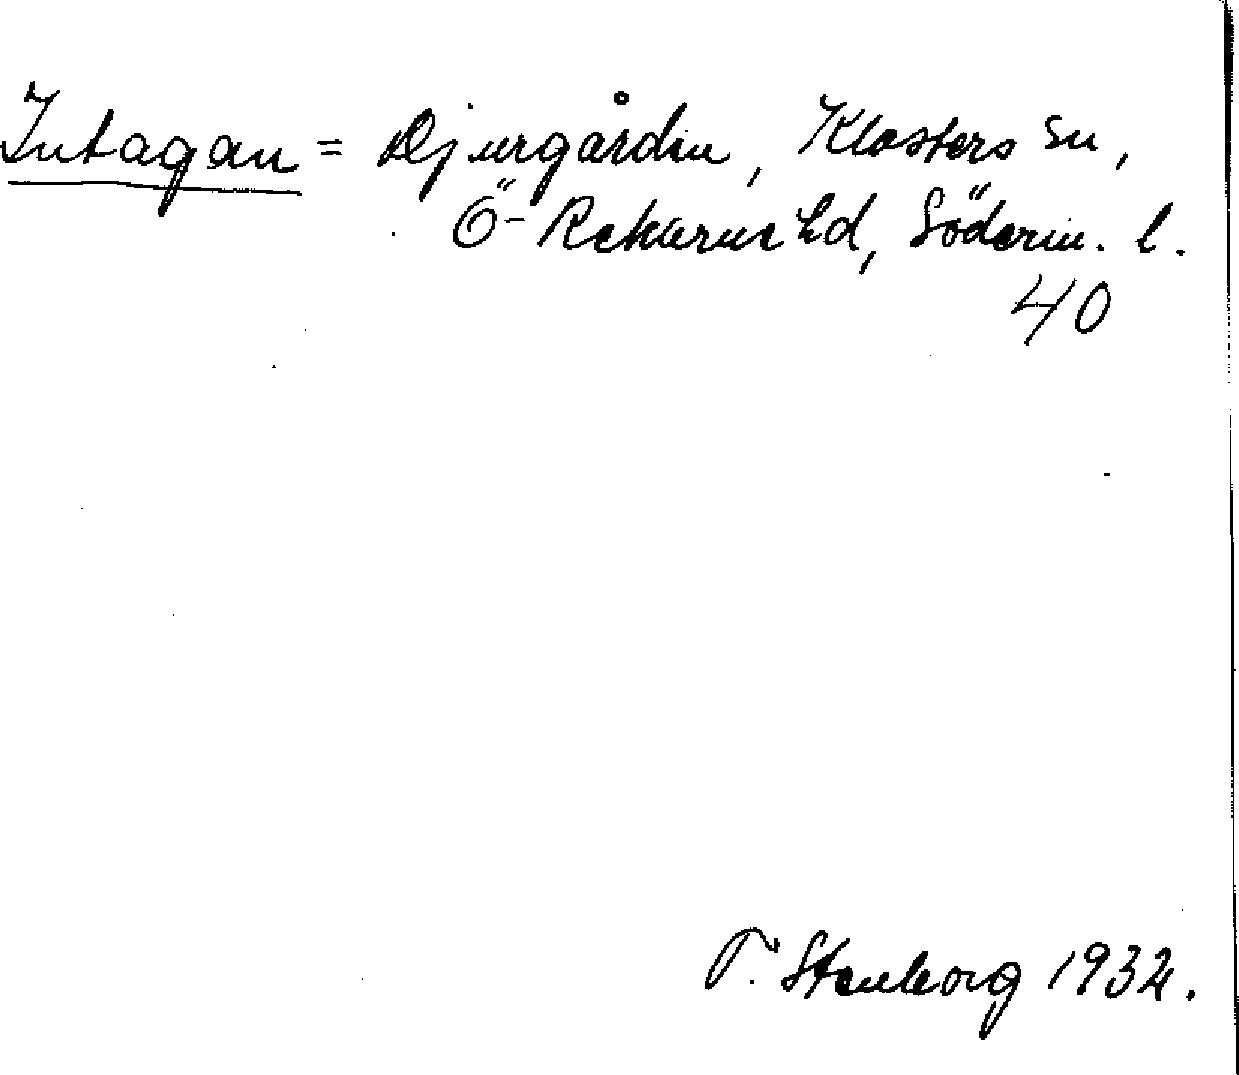 Intagan = Djurgården, Klosters sn,
Ö-Rekarne hd, Söderm. l.
40
T. Stenborg 1932.